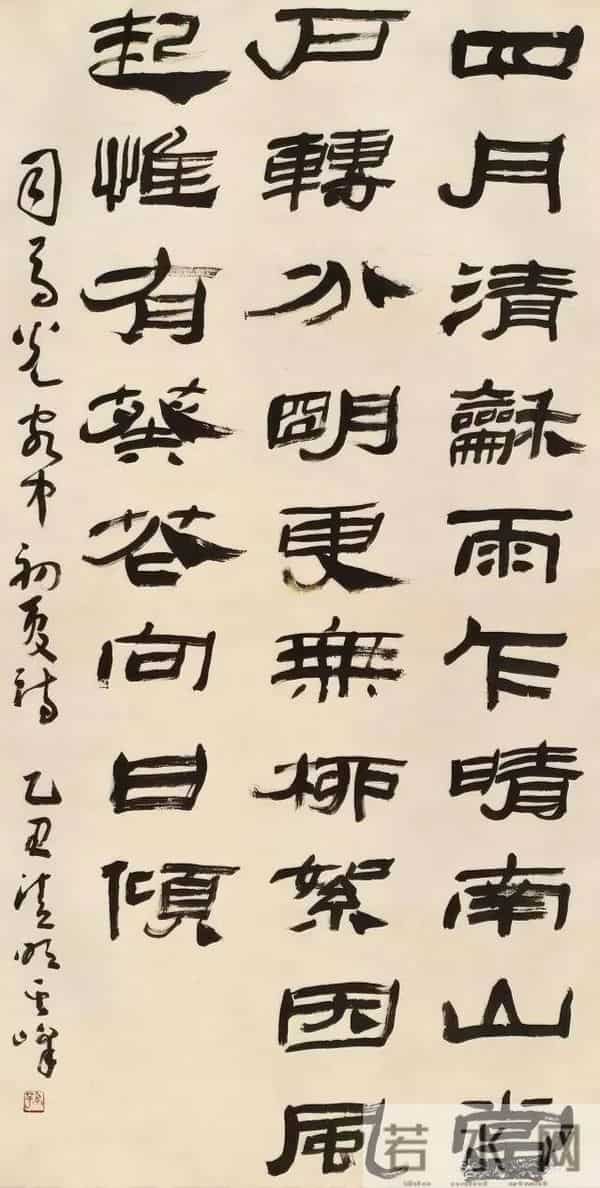 四月清龢雨乍晴南山當
户轉分明更無柳絮因風
起惟有葵花向日傾
司馬光客中初夏詩 乙丑清明其峰
若水网